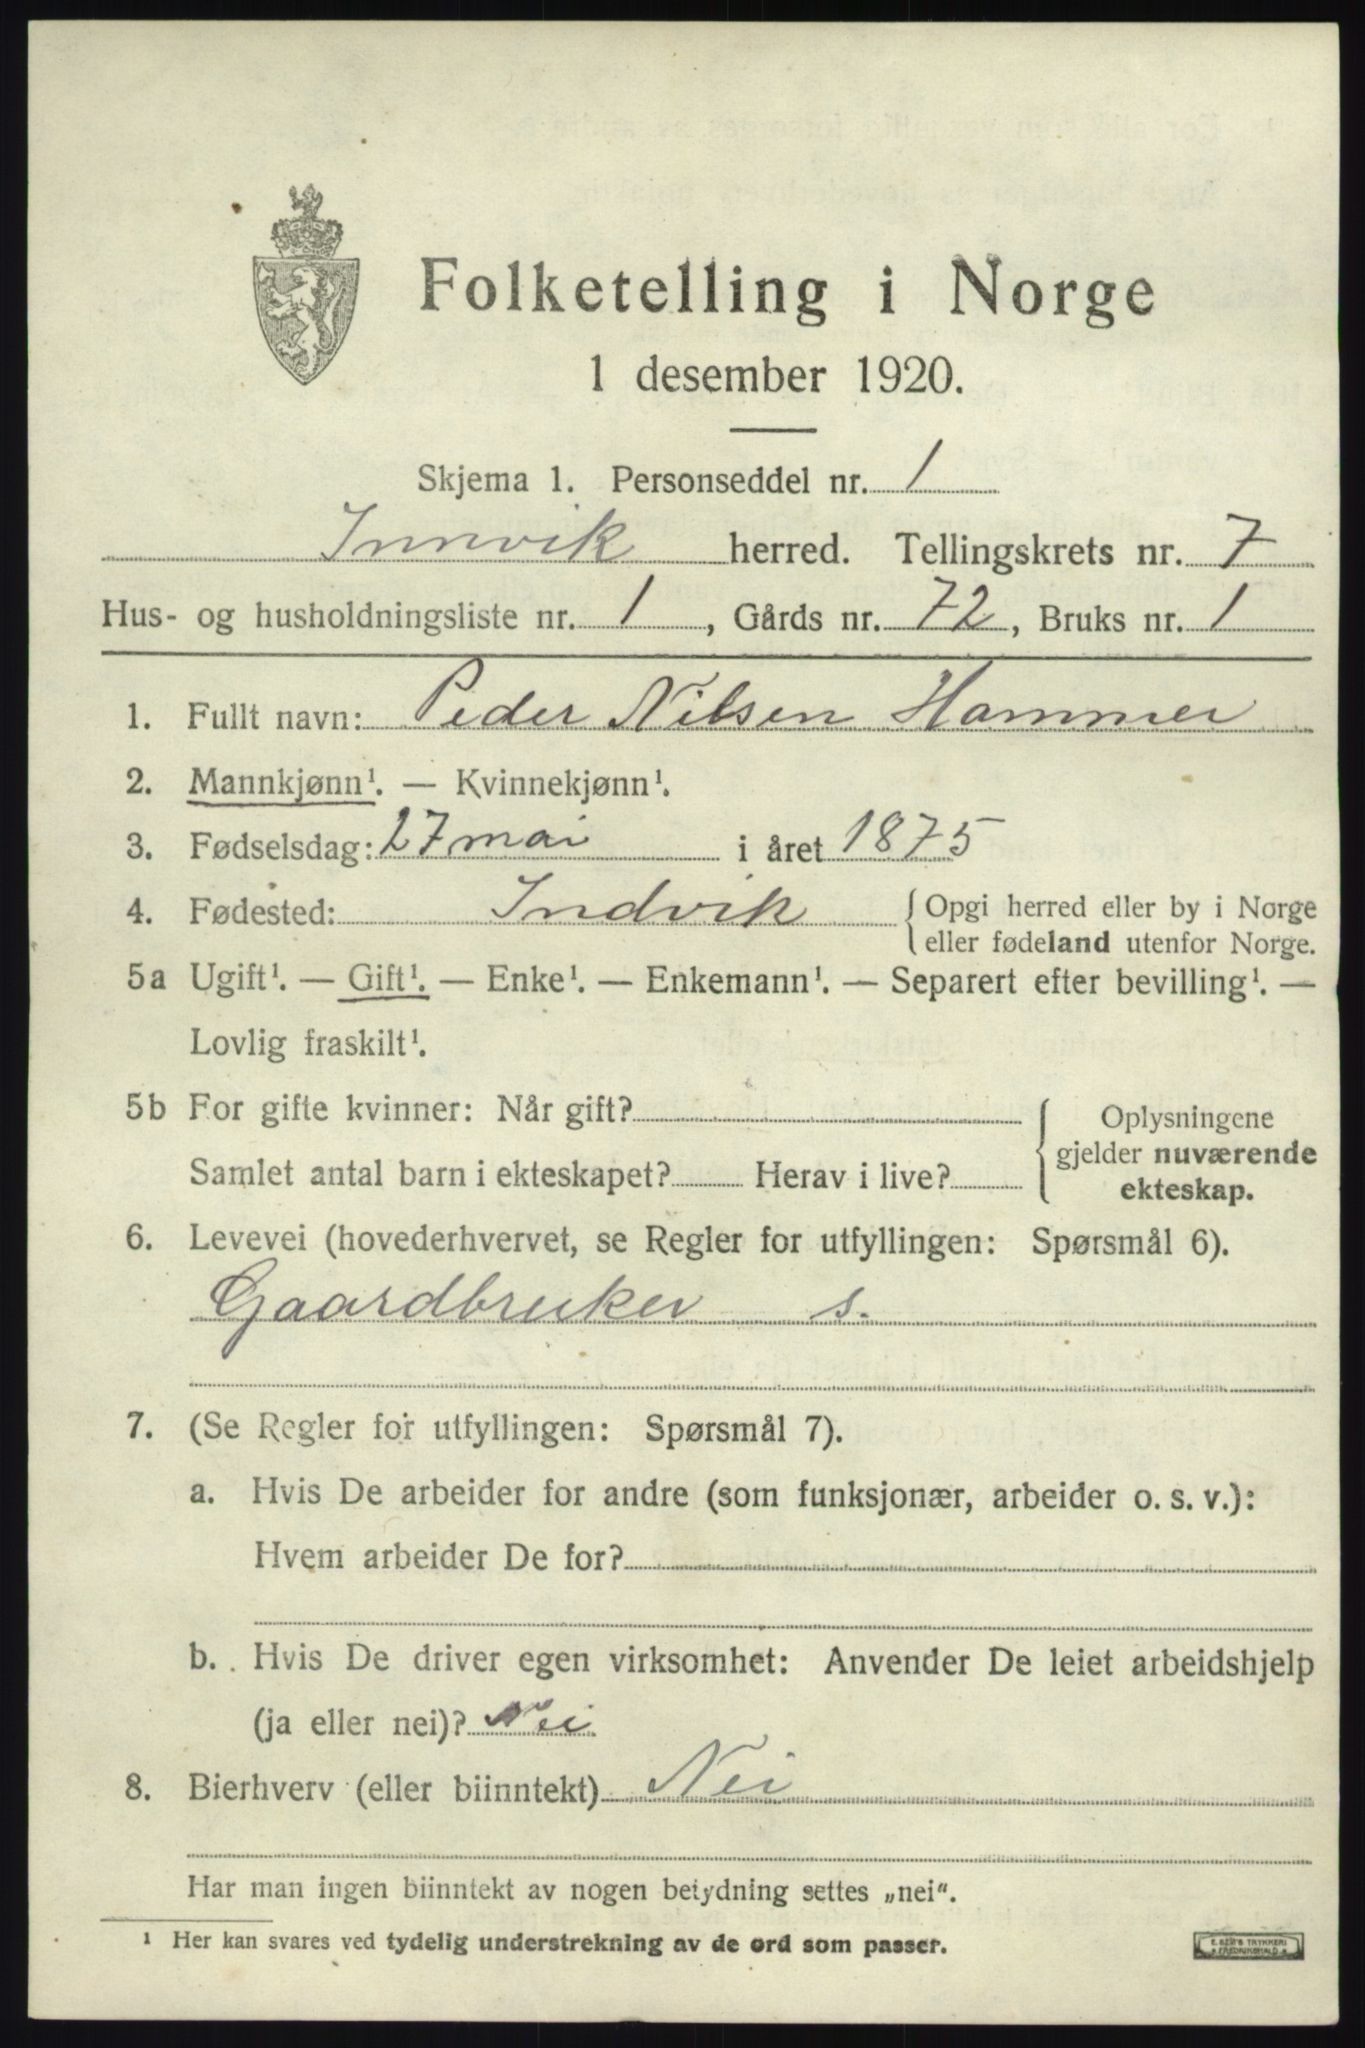 Folketelling i Norge
1 desember 1920.
Skjema 1. Personseddel nr. 1
Innvik herred. Tellingskrets nr. 7
Hus- og husholdningsliste nr. 1, Gårds nr. 72, Bruks nr. 1
1. Fullt navn: Peder Nilsen Hammer
2. Mannkjønn¹. — Kvinnekjønn¹.
3. Fødselsdag: 27 mai i året 1875
4. Fødested: Indvik { Opgi herred eller by i Norge
eller fødeland utenfor Norge.
5a Ugift¹. — Gift¹. — Enke¹. — Enkemann¹. — Separert efter bevilling¹. —
Lovlig fraskilt¹.
5b For gifte kvinner: Når gift? { Oplysningene
gjelder nuværende
Samlet antal barn i ekteskapet? Herav i live?
ekteskap.
6. Levevei (hovederhvervet, se Regler for utfyllingen: Spørsmål 6).
Gaardbruker s.
7. (Se Regler for utfyllingen: Spørsmål 7).
a. Hvis De arbeider for andre (som funksjonær, arbeider o. s. v.):
Hvem arbeider De for?
b. Hvis De driver egen virksomhet: Anvender De leiet arbeidshjelp
(ja eller nei)? Nei
8. Bierhverv (eller biinntekt) Nei
Har man ingen biinntekt av nogen betydning settes „nei“.
¹ Her kan svares ved tydelig understrekning av de ord som passer.
E. SEM'S TRYKKERI
FREDRIKSHALD